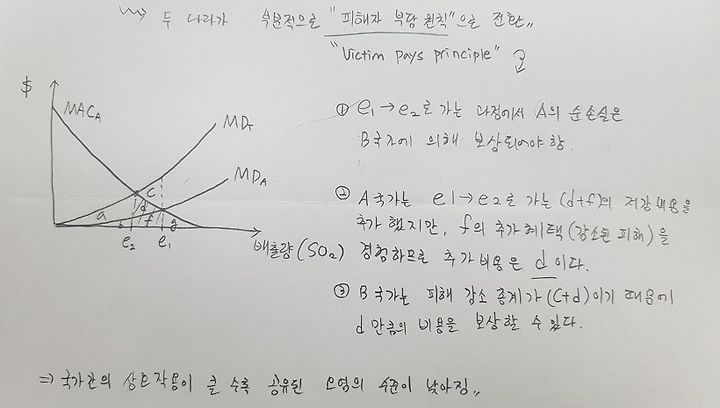 두 나라가 부분적으로 "피해자 부담 원칙"으로 전환,,
"Victim pays principle"
$
MACA
MDT
MDA
a
b
c
d
f
g
e2
e1
배출량(SO2)
① e1→e2로 가는 과정에서 A의 순손실은
B국가에 의해 보상되어야 함.
② A국가는 e1→e2로 가는 (d+f)의 저감비용을
추가 했지만, f의 추가 혜택(감소된 피해)을
경험하므로 추가비용은 d이다.
③ B국가는 피해 감소 총계가 (c+d)이기 때문에
d만큼의 비용을 보상할 수 있다.
⇒ 국가간의 상호작용이 클 수록 공유된 오염의 수준이 낮아짐,,